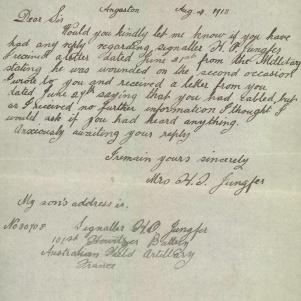 Angaston Aug 4, 1918
Dear Sir
Would you kindly let me know if you have
had any reply regarding signaller H. P. Jungfer
I received a letter dated June 21st from the Military
stating he was wounded on the second occasion
I wrote to you and received a letter from you
dated June 27th saying that you had cabled, but
as I received no further information I thought I
would ask if you had heard anything.
Anxiously awaiting your reply
I remain yours sincerely
Mrs H. I. Jungfer
My son's address is.
No 30708 Signaller H. P. Jungfer
101st Howitzer Battery
Australian Field Artillery
France